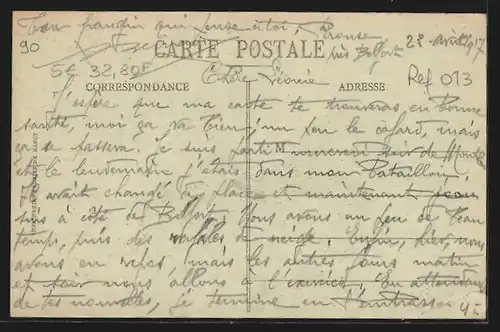 Ton frangin qui pense à toi,
Pérouse
près Belfort
28 avril 1917
90
CARTE POSTALE
5€ 32,80F
Ref 013
Chère Léonie
CORRESPONDANCE
ADRESSE
J'espère que ma carte te trouveras en bonne
santé, moi ça va bien, un peu le cafard, mais
ça se passera. Je suis parti mercredi soir de
M
et le lendemain j'étais dans mon Bataillon,
avait changé de place et maintenant
suis à côté de Belfort. Nous avons un peu de beau
temps, puis des rafales de neige. Enfin, hier, nous
avons eu repos, mais les autres jours matin
et soir nous allons à l'exercice. En attendant
de tes nouvelles, je termine en t'embrassant